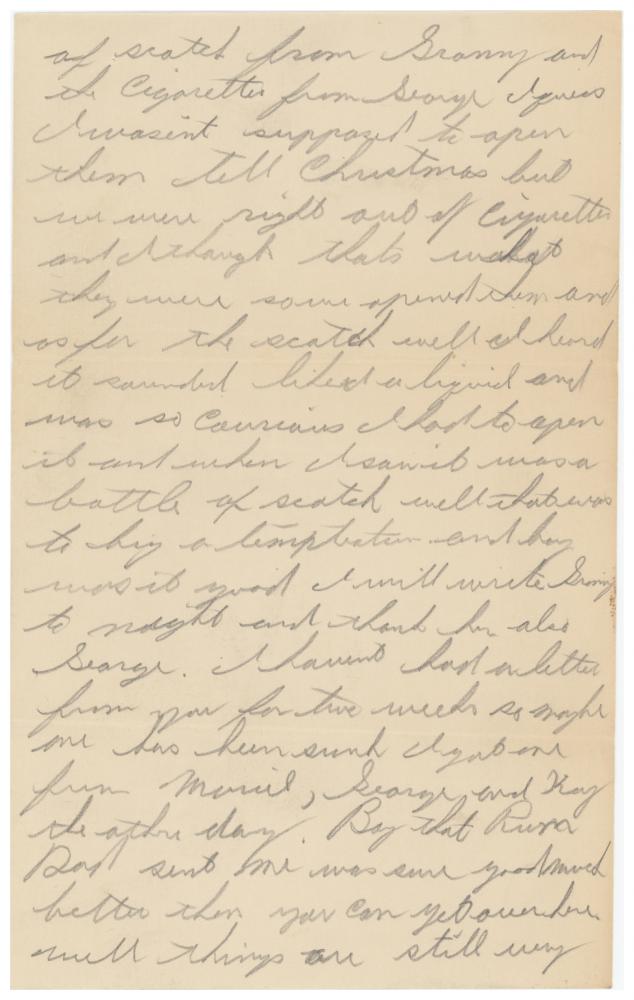 of scotch from Granny and
the Cigarettes from George I guess
I wasent supposed to open
them tell Christmas but
we were right out of Cigarettes
and I though thats what
they were so we opened them and
as for the scotch well I heard
it sounded liked a liquid and
was so Courious I had to open
it and when I saw it was a
bottle of scotch well that was
to big a temptation and boy
was it good I will write Granny
to night and thank her also
George. I havent had a letter
from you for two weeks so maybe
one has been sunk I got one
from Muriel, George, and Kay
the other day. Boy that Rum
Dad sent me was sure good much
better then you can get over here.
well things are still very